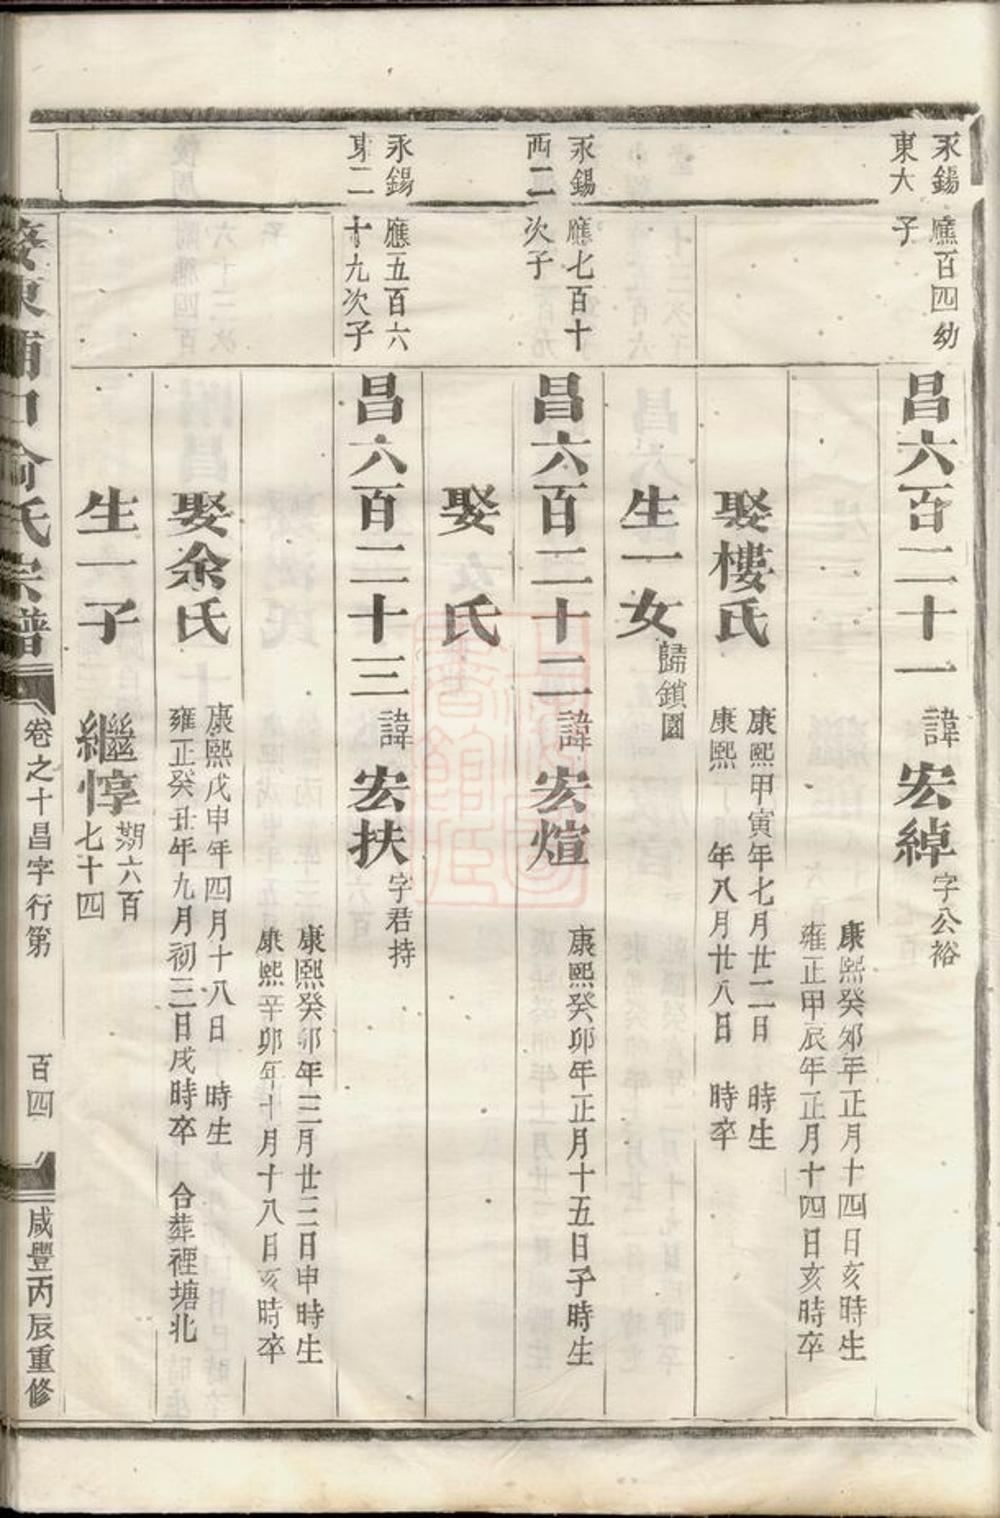 永錫
東大
應百四幼
子
昌六百二十一
諱
宏綽
字公裕
康熙癸卯年正月十四日亥時生
雍正甲辰年正月十四日亥時卒
娶樓氏
康熙甲寅年七月廿二日 時生
康熙 年八月廿八日 時卒
生一女
歸鎖園
永錫
西二
應七百十
次子
昌六百二十二
諱
宏煊
康熙癸卯年正月十五日子時生
娶 氏
永錫
東二
應五百六
十九次子
昌六百二十三
諱
宏扶
字君持
康熙癸卯年三月廿三日申時生
康熙辛卯年十月十八日亥時卒
娶余氏
康熙戊申年四月十八日 時生
雍正癸丑年九月初三日戌時卒 合葬裡塘北
生一子
繼惇
期六百
七十四
婺東浦口俞氏宗譜
卷之十昌字行第
百四
咸豐丙辰重修